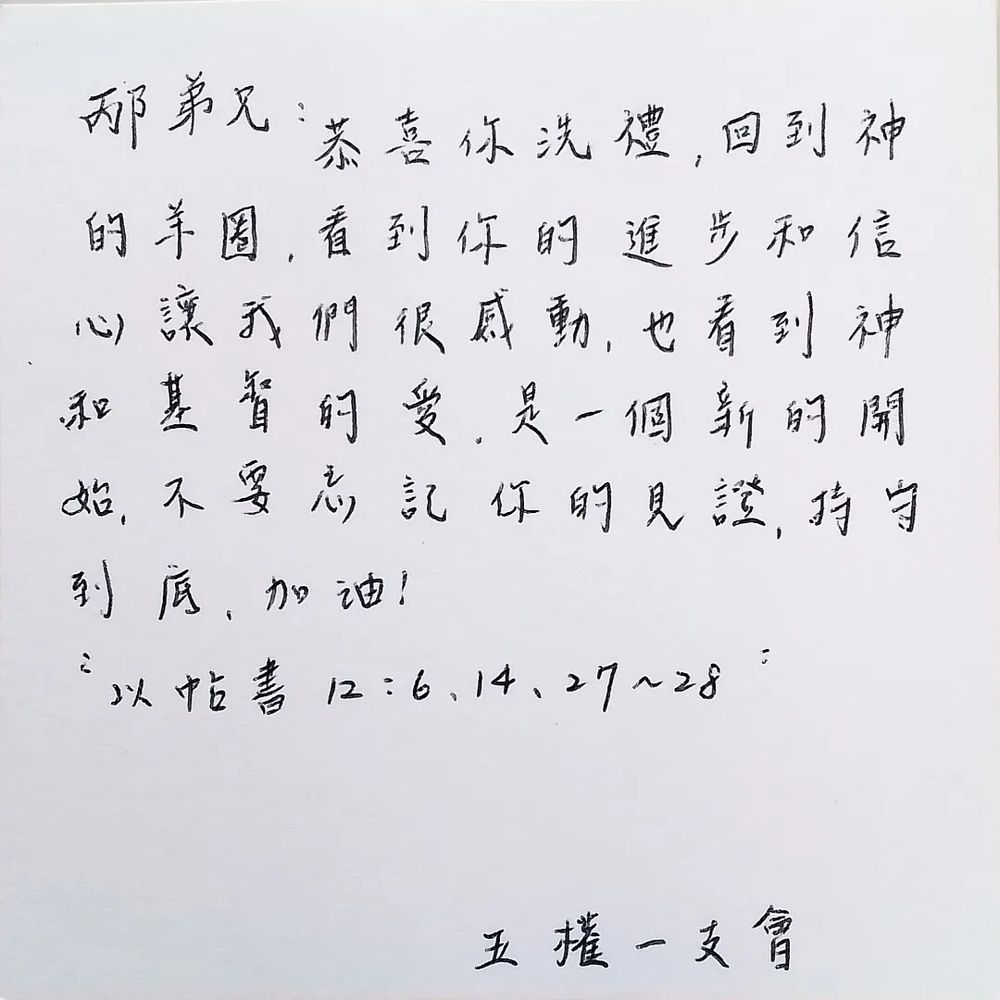 邴弟兄：恭喜你洗禮，回到神
的羊圈，看到你的進步和信
心讓我們很感動，也看到神
和基督的愛，是一個新的開
始，不要忘記你的見證，持守
到底，加油！
"以帖書 12：6、14、27~28"
五權一支會